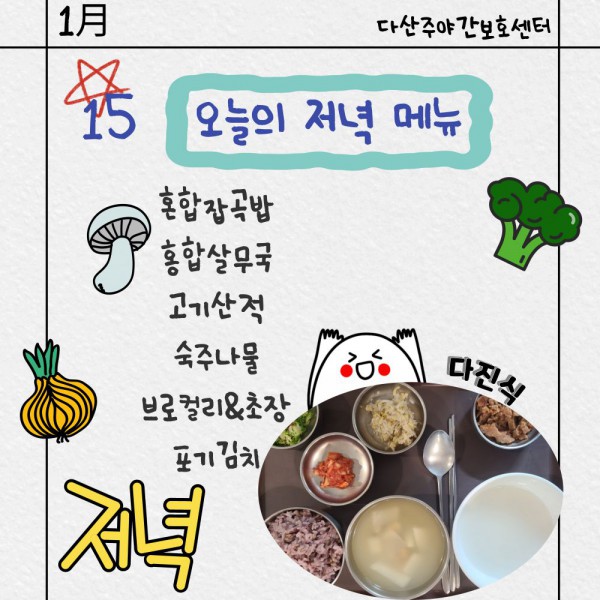 1月
다산주야간보호센터
15
오늘의 저녁 메뉴
혼합잡곡밥
홍합살무국
고기산적
숙주나물
브로컬리&초장
포기김치
다진식
저녁